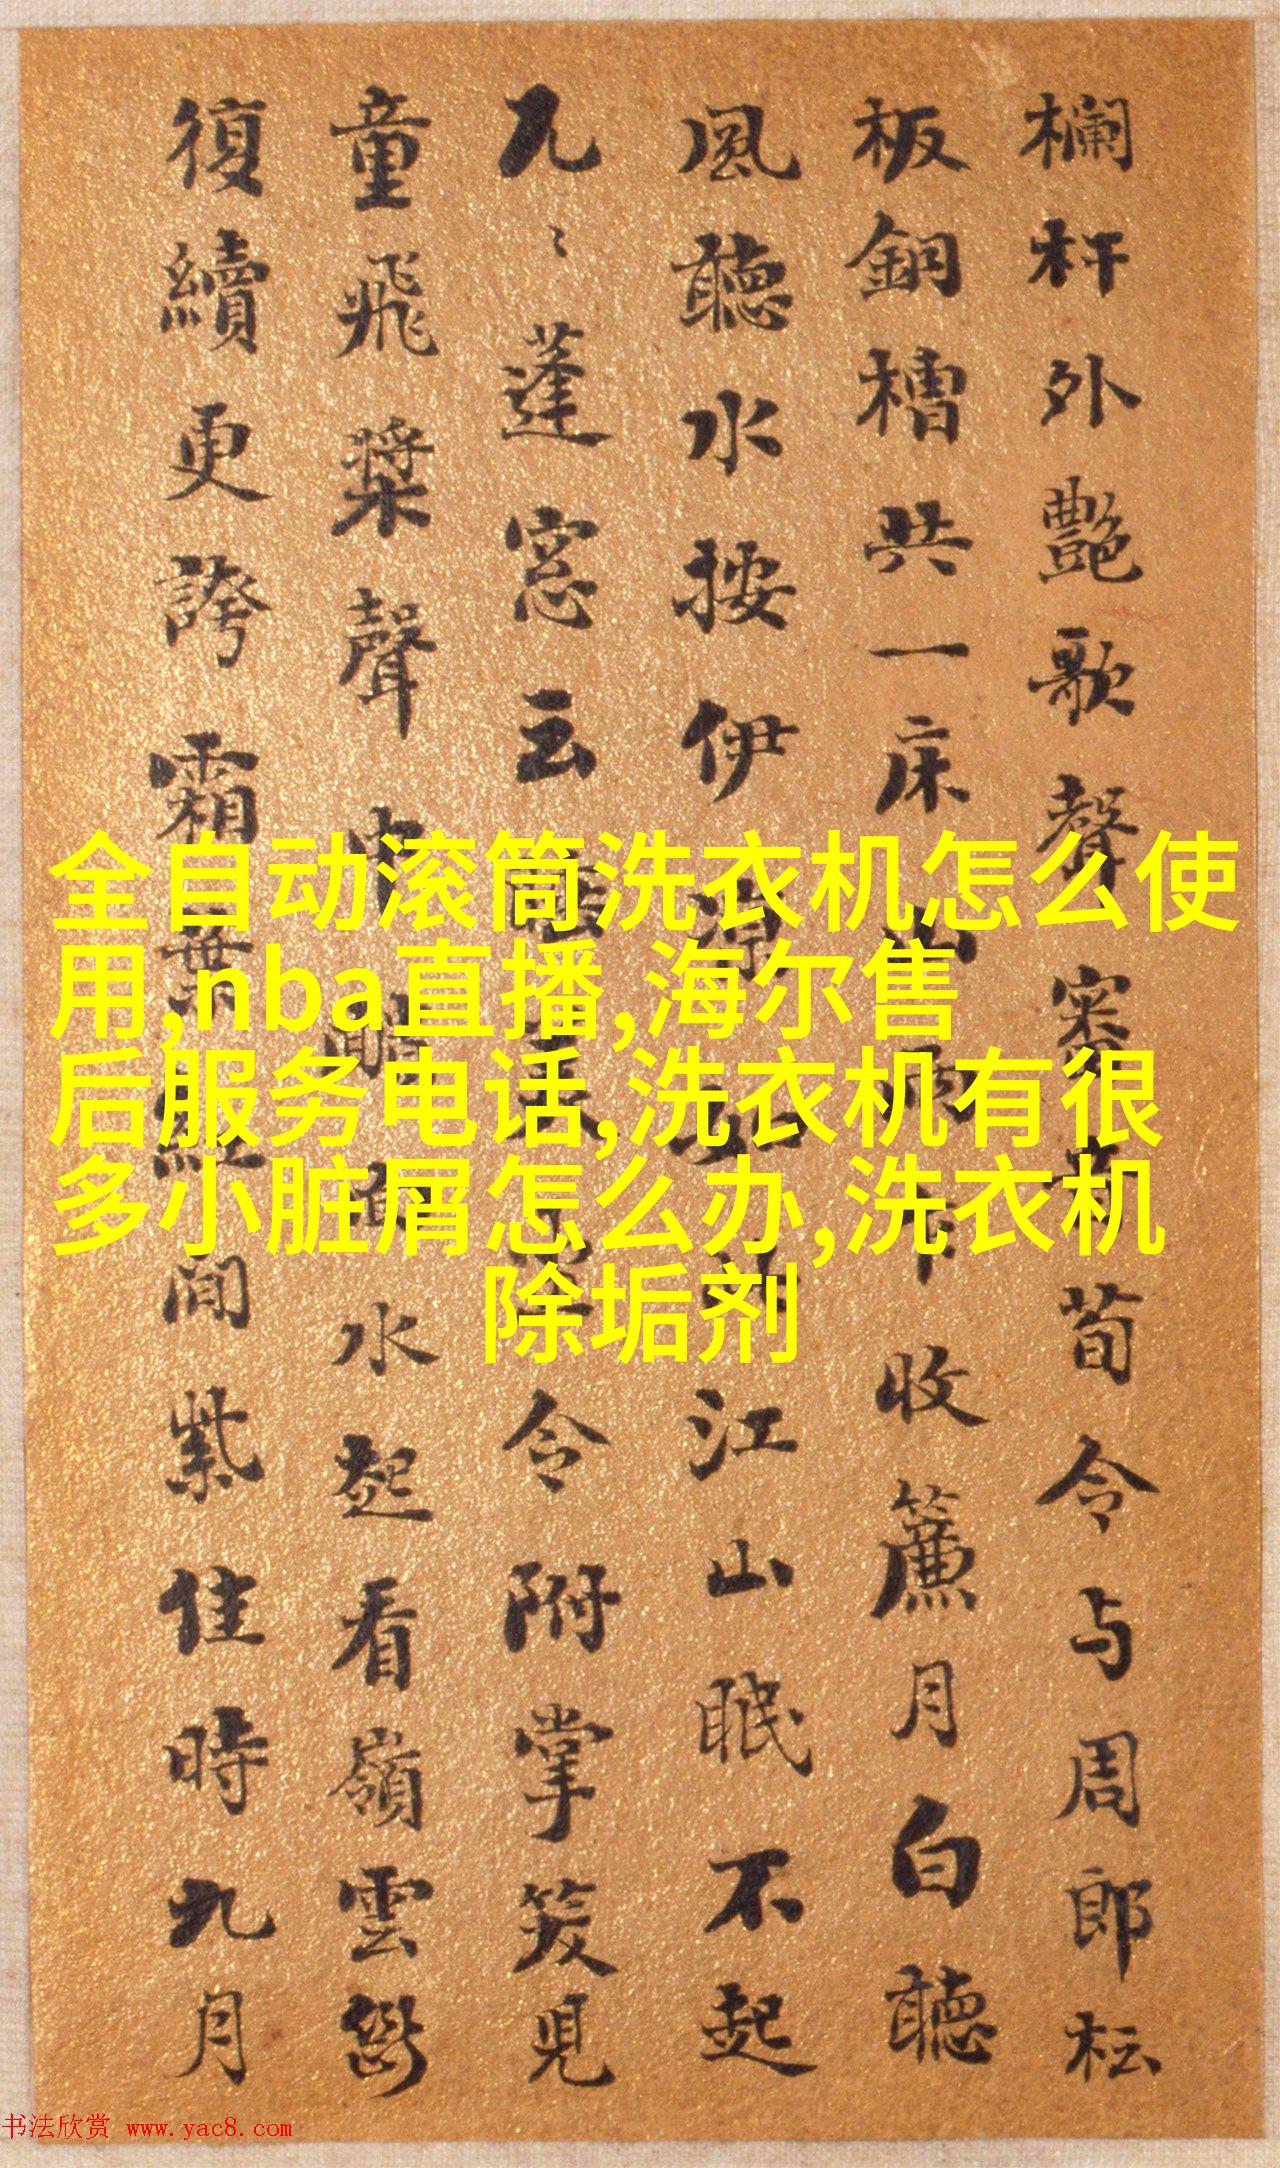 欄杆外艷歌聲密荀令与周郎枟
板銅槽共一床山雨乍收簾月白聽
風聽水按伊涼如此江山眠不起
蓬窓云令附掌笑見
童飛槳聲中醒水起看嶺雲
復續更誇霜葉紅間紫佳時九月
全自动滚筒洗衣机怎么使
用,nba直播,海尔售
后服务电话,洗衣机有很
多小脏屑怎么办,洗衣机
除垢剂
书法欣赏 www.yac8.com